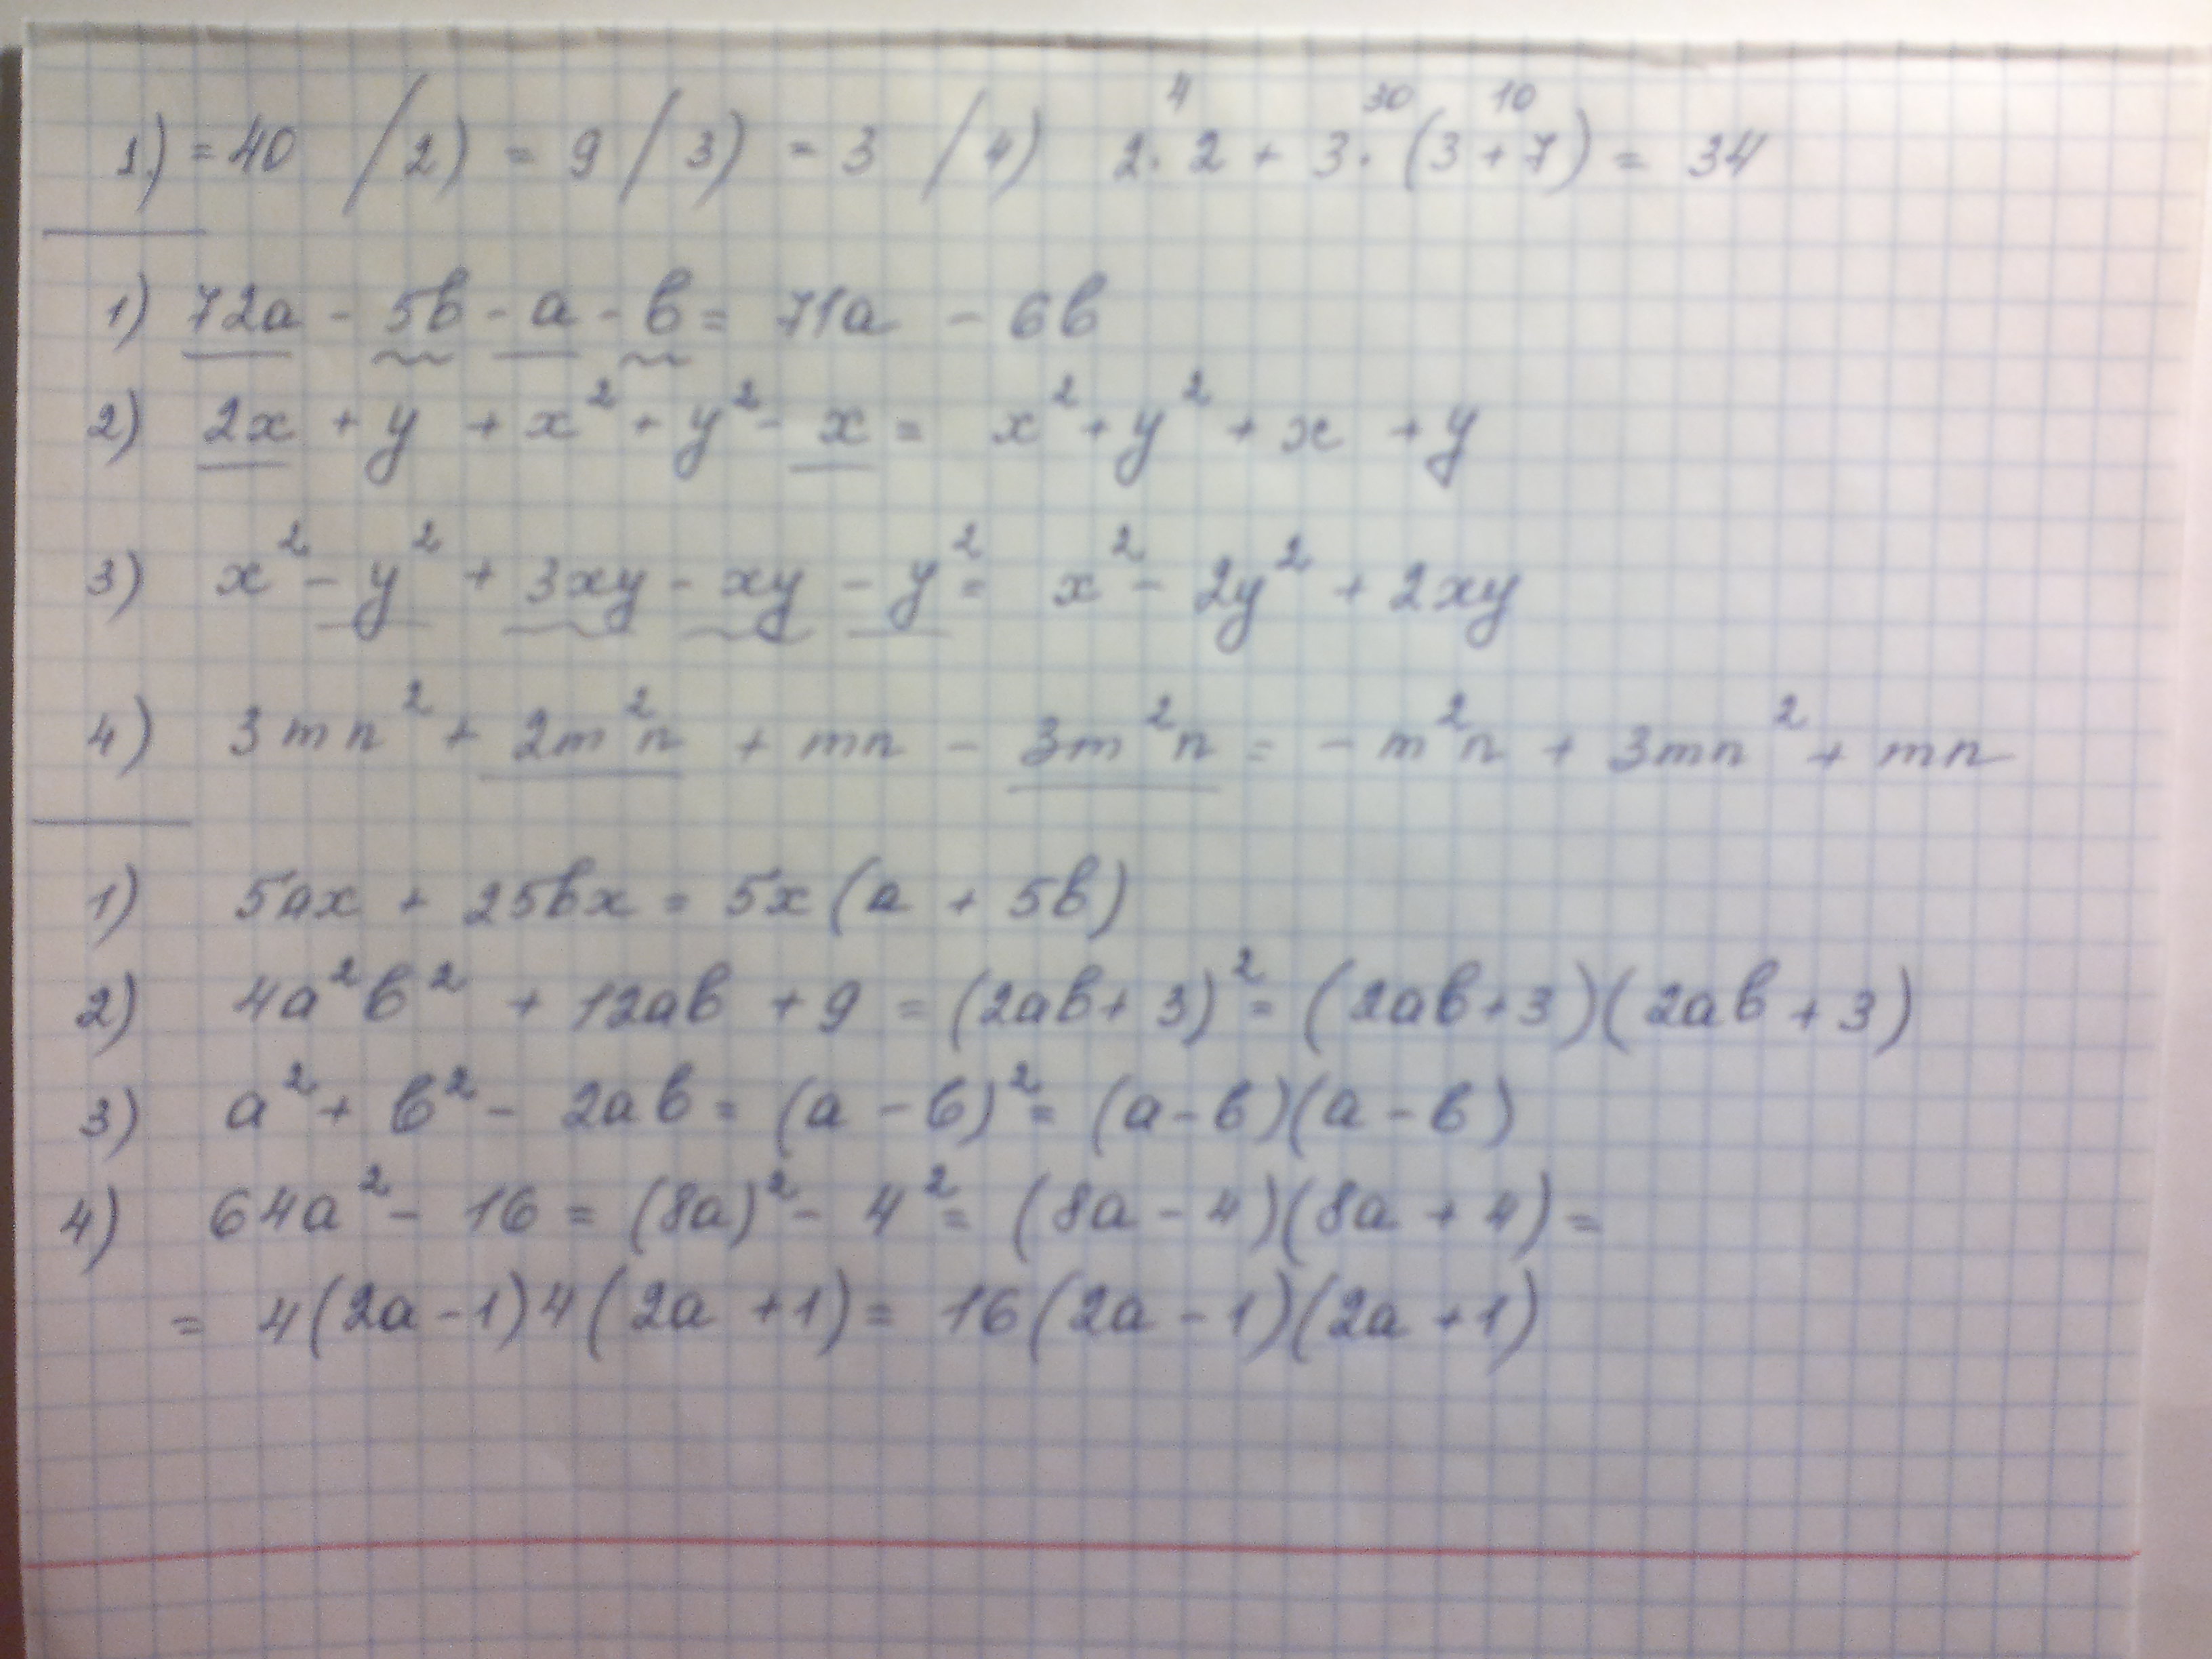 1.) = 40 / 2) = 9 / 3) = 3 / 4) 2 · 2 + 3 · (3 + 7) = 34
4 30 10
1) 72a - 5b - a - b = 71a - 6b
2) 2x + y + x² + y² - x = x² + y² + x + y
3) x² - y² + 3xy - xy - y² = x² - 2y² + 2xy
4) 3mn² + 2m²n + mn - 3m²n = - m²n + 3mn² + mn
1) 5ax + 25bx = 5x(a + 5b)
2) 4a²b² + 12ab + 9 = (2ab + 3)² = (2ab + 3)(2ab + 3)
3) a² + b² - 2ab = (a - b)² = (a - b)(a - b)
4) 64a² - 16 = (8a)² - 4² = (8a - 4)(8a + 4) =
= 4(2a - 1)4(2a + 1) = 16(2a - 1)(2a + 1)